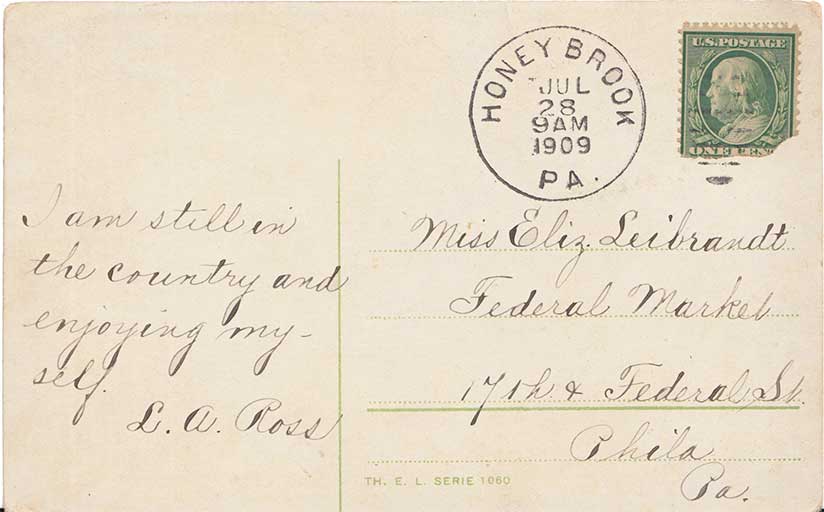 HONEY BROOK
JUL
28
9AM
1909
PA.
U.S. POSTAGE
ONE CENT
I am still in
the country and
enjoying my-
self.
L. A. Ross
Miss Eliz. Leibrandt
Federal Market
17th & Federal St.
Phila
Pa.
TH. E. L. SERIE 1060